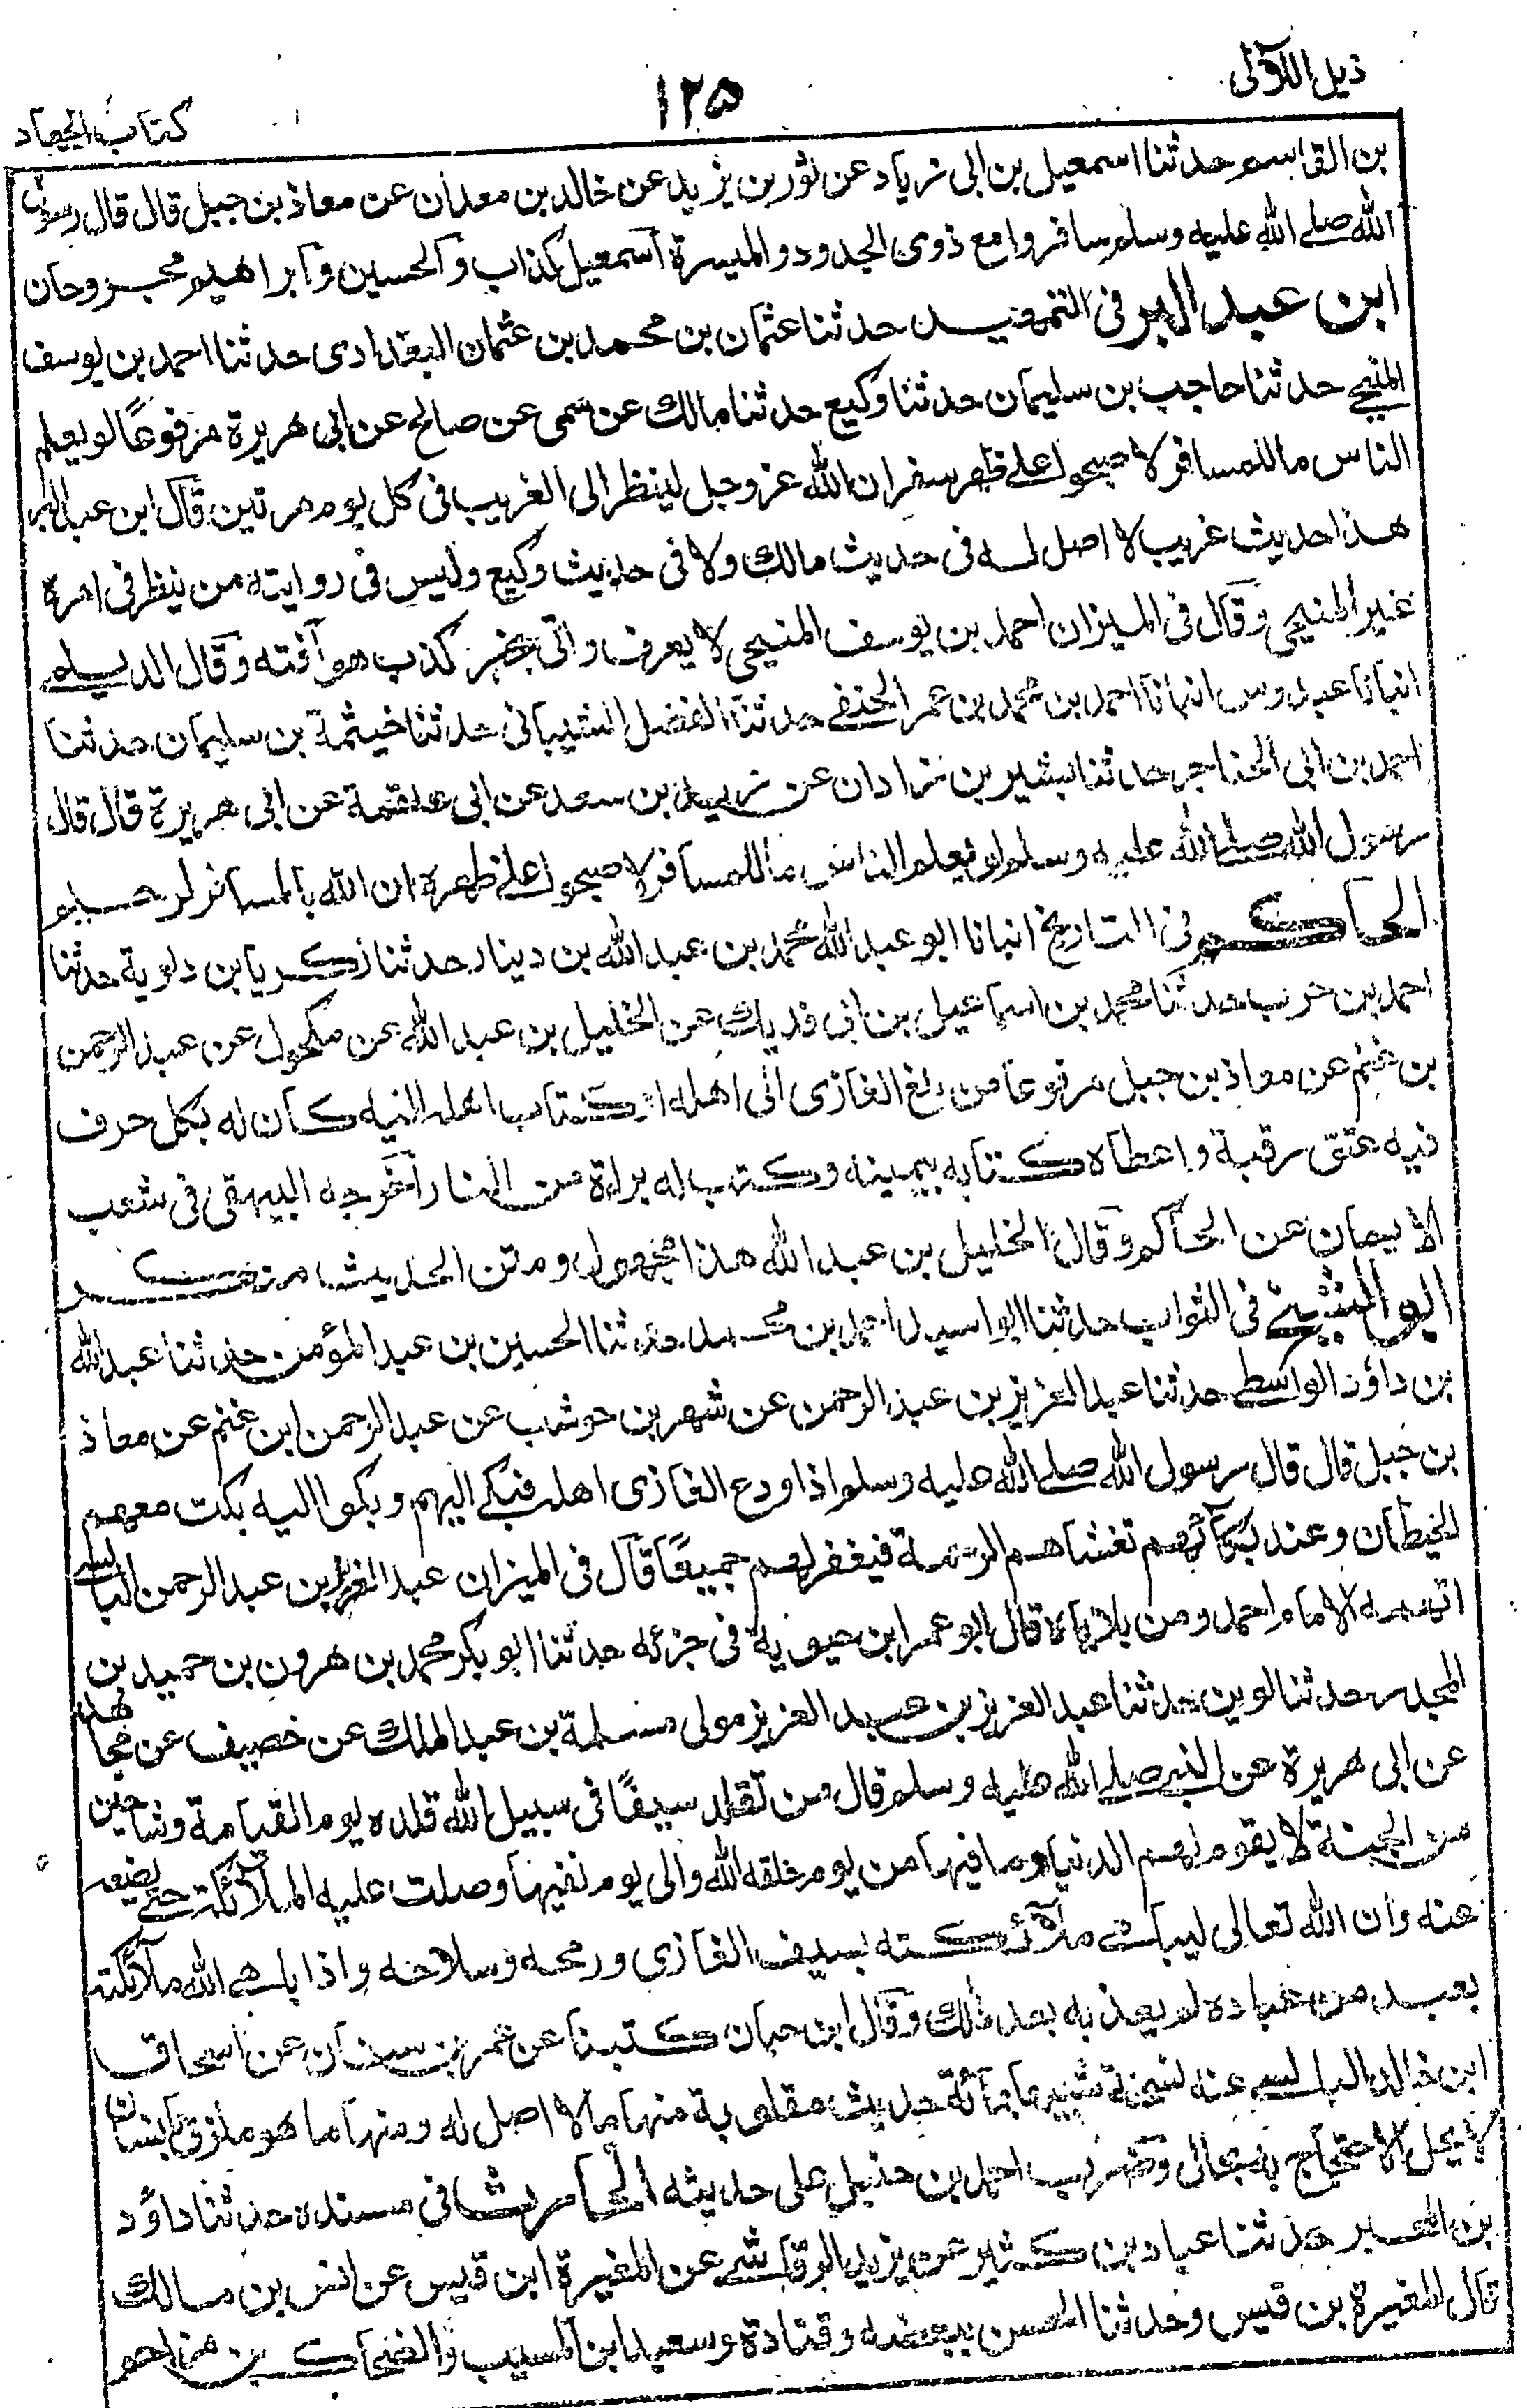 ذيل اللآلى
١٢٥
كتاب الجهاد
بن القاسم حدثنا اسمعيل بن ابى زياد عن ثور بن يزيد عن خالد بن معدان عن معاذ بن جبل قال قال رسول
الله صلے الله عليه وسلم سافروا مع ذوى الجدود و الميسرة اسمعيل كذاب والحسين وابراهيم مجروحان
ابن عبد البر فى التمهيد حدثنا عثمان بن محمد بن عثمان البغدادى حدثنا احمد بن يوسف
المنبجے حدثنا حاجب بن سليمان حدثنا وكيع حدثنا مالك عن سمى عن صالح عن ابى هريرة مرفوعًا لو يعلم
الناس ما للمسافر لاصبحوا علے ظهر سفر ان الله عز وجل لينظر الى الغريب فى كل يوم مرتين قال ابن عبد البر
هذا حديث غريب لا اصل له فى حديث مالك ولا فى حديث وكيع وليس فى روايته من ينظر فى امره
غير المنبجى وقال فى الميزان احمد بن يوسف المنبجى لا يعرف واتى بخبر كذب هو آفته وقال الديلمے
انبانا عبدوس انبانا احمد بن محمد بن عمر الحنفے حدثنا الفضل الشيبانى حدثنا خيثمة بن سليمان حدثنا
احمد بن ابى الخناجر حدثنا بشير بن زادان عن بن سعد عن ابى علقمة عن ابى هريرة قال قال
رسول الله صلے الله عليه وسلم لو يعلم الناس ما للمسافر لاصبحوا علے ظهره ان الله بالمسافر لرحيم
الحاكم فى التاريخ انبانا ابو عبد الله محمد بن عبد الله بن دينار حدثنا زكريا بن دلوية حدثنا
احمد بن حرب حدثنا محمد بن اسماعيل بن ابى فديك عن الخليل بن عبد الله عن مكحول عن عبد الرحمن
بن غنم عن معاذ بن جبل مرفوعا من بلغ الغازى الى اهله او كتاب اهله اليه كان له بكل حرف
فيه عتق رقبة واعطاه كتابه بيمينه وكتب له براءة من النار اخرجه البيهقى فى شعب
الايمان عن الحاكم وقال الخليل بن عبد الله هذا مجهول ومتن الحديث منكر
ابو الشيخ فى الثواب حدثنا ابو اسيد احمد بن محمد حدثنا الحسين بن عبد المؤمن حدثنا عبد الله
بن داؤد الواسطے حدثنا عبد العزيز بن عبد الرحمن عن شهر بن حوشب عن عبد الرحمن ابن غنم عن معاذ
بن جبل قال قال رسول الله صلے الله عليه وسلم اذا ودع الغازى اهله فبكے اليهم وبكوا اليه بكت معهم
الحيطان وعند بكآئهم تغشاهم الرحمة فيغفر لهم جميعًا قال فى الميزان عبد العزيز بن عبد الرحمن البالسے
اتهمه الامام احمد ومن بلاياه قال ابو عمر ابن حيوية فى جزئه حدثنا ابو بكر محمد بن هرون بن حميد بن
المجدر حدثنا لوين حدثنا عبد العزيز بن عبد العزيز مولى مسلمة بن عبد الملك عن خصيف عن مجاهد
عن ابى هريرة عن النبے صلے الله عليه وسلم قال من تقلد سيفًا فى سبيل الله قلده يوم القيامة وشاحين
من الجنة لا يقوم لهم الدنيا وما فيها من يوم خلقه الله والى يوم تفنيها وصلت عليه الملآئكة حتے يضعه
عنه وان الله تعالى ليباهے ملآئكته بسيف الغازى ورمحه وسلاحه واذا باهے الله ملآئكته
بعبد من عباده لم يعذبه بعد ذلك وقال ابن حبان كتبنا عن عمر بن سنان عن اسحاق
ابن خالد البالسے عنه نسخة شبيها بمائة حديث مقلوبة منها ما لا اصل له ومنها ما هو ملزق بانسان
لا يحل الاحتجاج به بحال وضرب احمد بن حنبل على حديثه الحارث فى مسنده حدثنا داؤد
بن المحبر حدثنا عباد بن كثير عن يزيد الرقاشے عن المغيرة ابن قيس عن انس بن مالك
قال المغيرة بن قيس وحدثنا الحسن ببعضه وقتادة وسعيد ابن المسيب والضحاك بن مزاحم